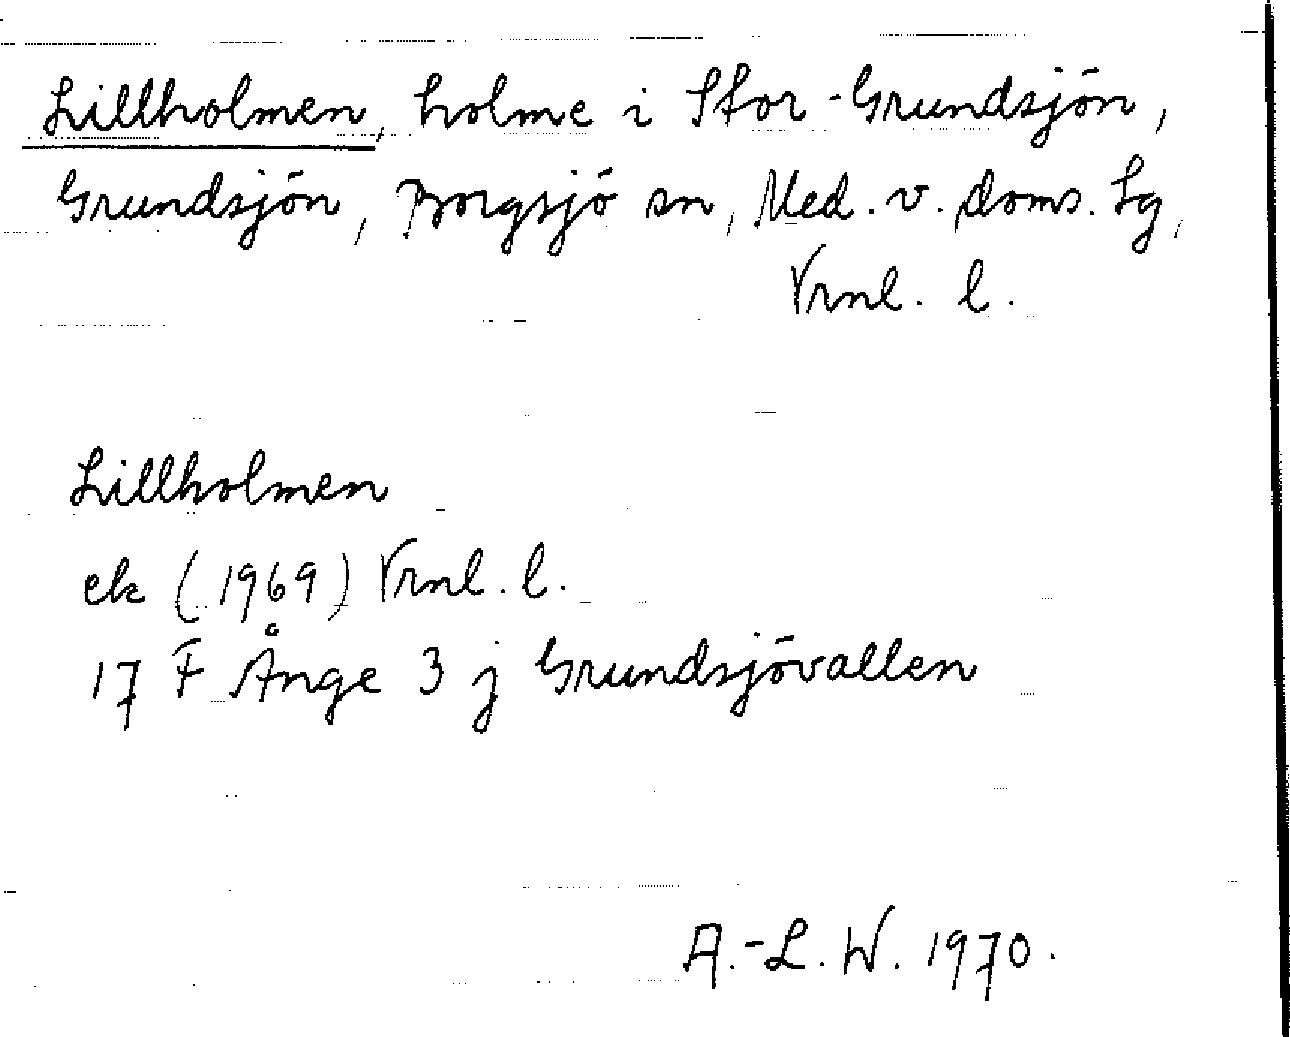 Lillholmen, holme i Stor-Grundsjön,
Grundsjön, Borgsjö sn, Med. v. doms. Lg,
Vrnl. l.
Lillholmen
ek (1969) Vrnl. l.
17 F Ånge 3 j Grundsjövallen
A.-L. W. 1970.